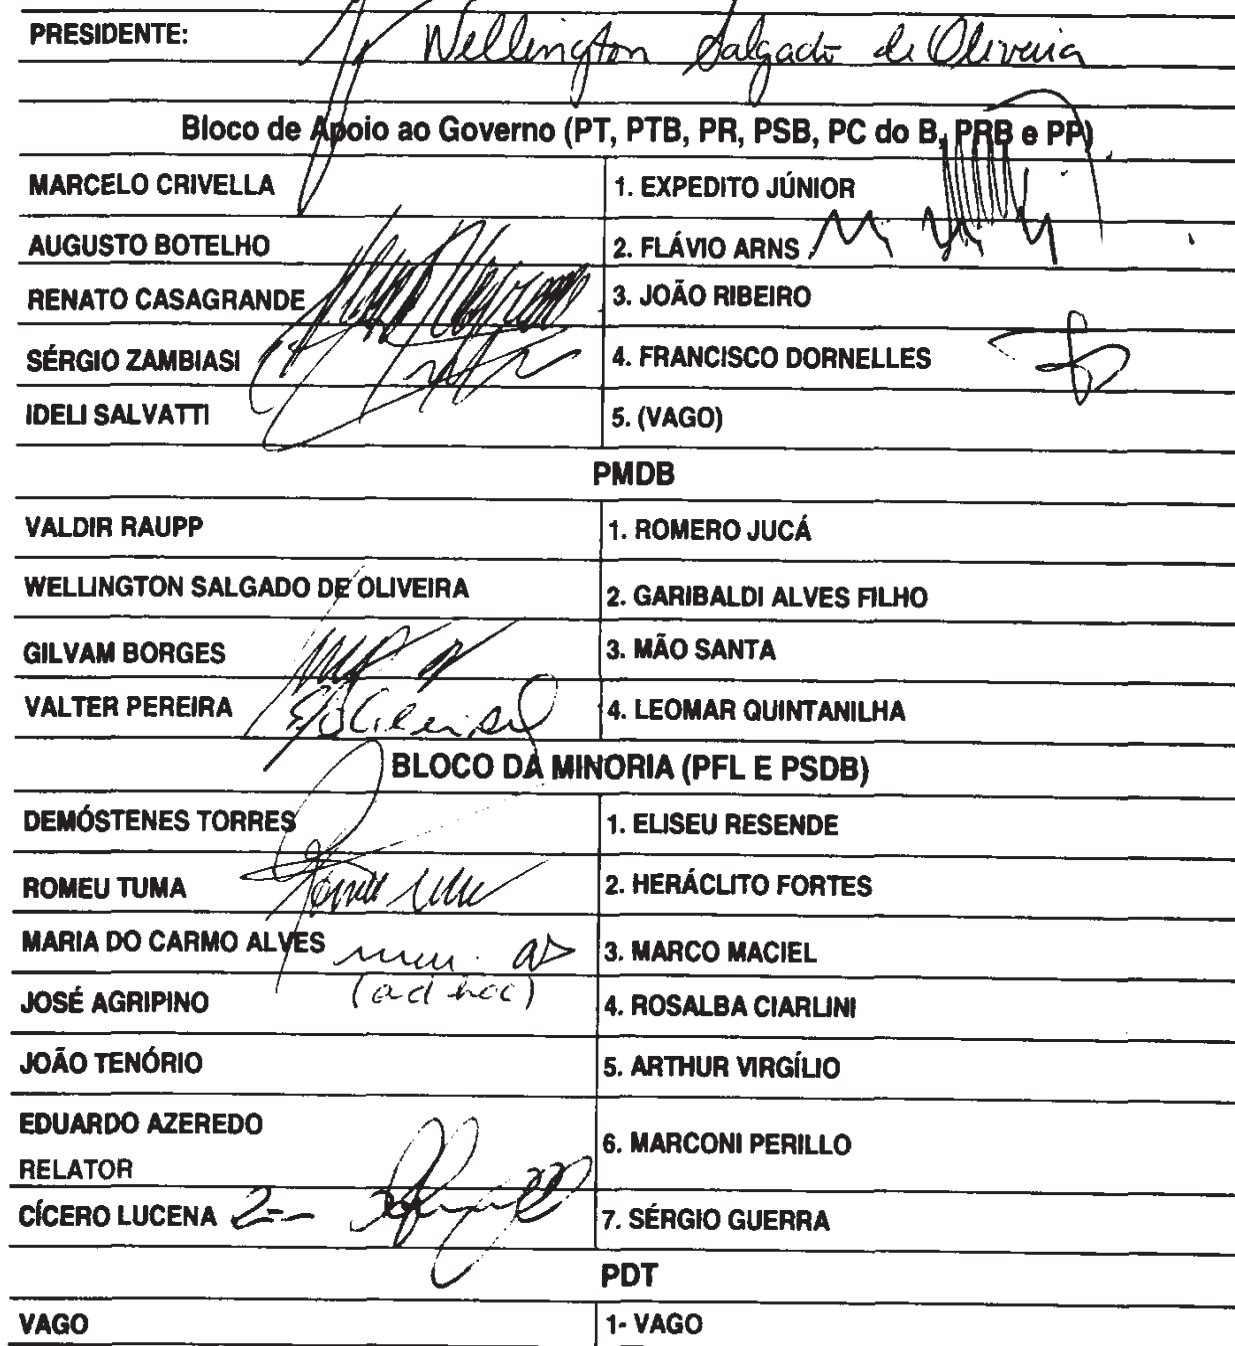 PRESIDENTE: Wellington Salgado de Oliveira
Bloco de Apoio ao Governo (PT, PTB, PR, PSB, PC do B, PRB e PP)
MARCELO CRIVELLA 1. EXPEDITO JÚNIOR
AUGUSTO BOTELHO 2. FLÁVIO ARNS
RENATO CASAGRANDE 3. JOÃO RIBEIRO
SÉRGIO ZAMBIASI 4. FRANCISCO DORNELLES
IDELI SALVATTI 5. (VAGO)
PMDB
VALDIR RAUPP 1. ROMERO JUCÁ
WELLINGTON SALGADO DE OLIVEIRA 2. GARIBALDI ALVES FILHO
GILVAM BORGES 3. MÃO SANTA
VALTER PEREIRA 4. LEOMAR QUINTANILHA
BLOCO DA MINORIA (PFL E PSDB)
DEMÓSTENES TORRES 1. ELISEU RESENDE
ROMEU TUMA 2. HERÁCLITO FORTES
MARIA DO CARMO ALVES 3. MARCO MACIEL
(ad hoc)
JOSÉ AGRIPINO 4. ROSALBA CIARLINI
JOÃO TENÓRIO 5. ARTHUR VIRGÍLIO
EDUARDO AZEREDO
RELATOR 6. MARCONI PERILLO
CÍCERO LUCENA 7. SÉRGIO GUERRA
PDT
VAGO 1- VAGO